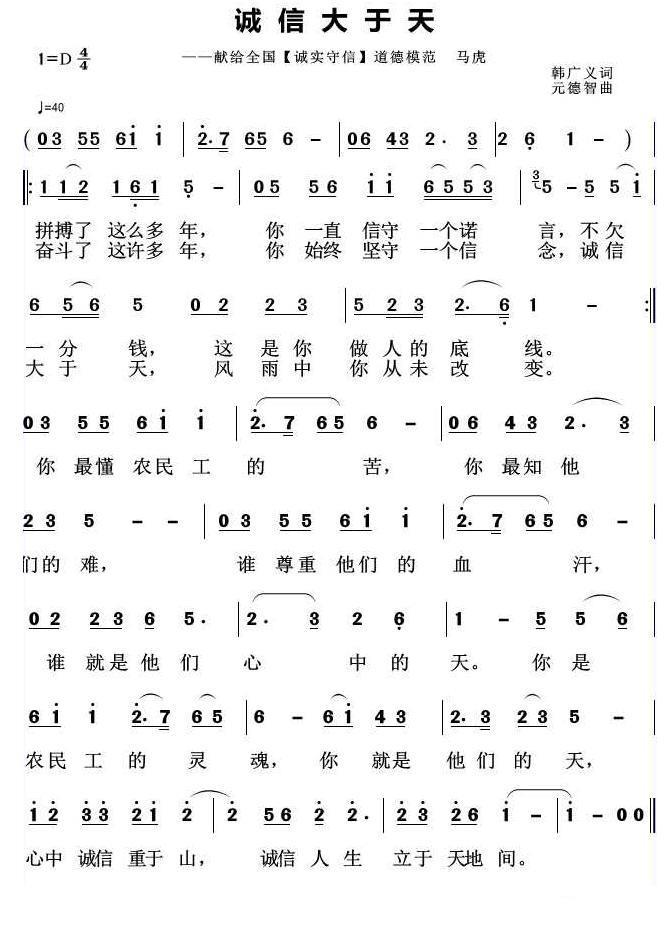 诚信大于天
1=D 4/4
——献给全国【诚实守信】道德模范 马虎
韩广义词
元德智曲
♩=40
( 03 55 61 1 | 2.7 65 6 - | 06 43 2. 3 | 2 6 1 - )
|: 112 161 5 - | 05 56 11 6553 | 3 5 - 5 51
拼搏了 这么多 年, 你 一直 信守 一个诺 言, 不欠
奋斗了 这许多 年, 你 始终 坚守 一个信 念, 诚信
6 56 5 02 2 23 | 5 23 2. 6 1 - :|
一 分 钱, 这 是 你 做 人 的 底 线。
大 于 天, 风 雨 中 你 从 未 改 变。
03 55 61 1 | 2.7 65 6 - | 06 43 2. 3 |
你 最懂 农民 工 的 苦, 你 最知 他
23 5 - - | 03 55 61 1 | 2.7 65 6 - |
们的 难, 谁 尊重 他们 的 血 汗,
02 23 6 5. | 2. 3 2 6 | 1 - 5 56 |
谁 就是 他 们 心 中 的 天。 你 是
61 1 2.7 65 | 6 - 61 43 | 2.3 23 5 - |
农民 工 的 灵 魂, 你 就是 他 们的 天,
12 33 21 2 | 2 56 2 2. | 23 26 1 - | 1 - 00 ‖
心中 诚信 重于 山, 诚信 人 生 立于 天地 间。